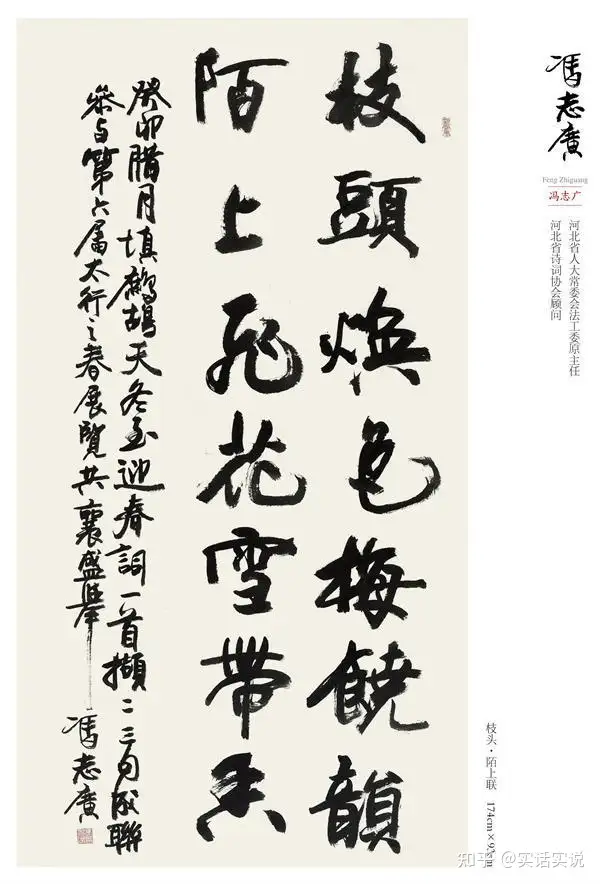 枝頭煥色梅饒韻
陌上飛花雪帶香
癸卯腊月填鹧鸪天冬至迎春詞一首擷二三句成聯
参与第六届太行之春展覽共襄盛舉
馮志廣
馮志廣
Feng Zhiguang
冯志广
河北省人大常委会法工委原主任
河北省诗词协会顾问
枝头·陌上联 174cm×92cm
知乎 @实话实说